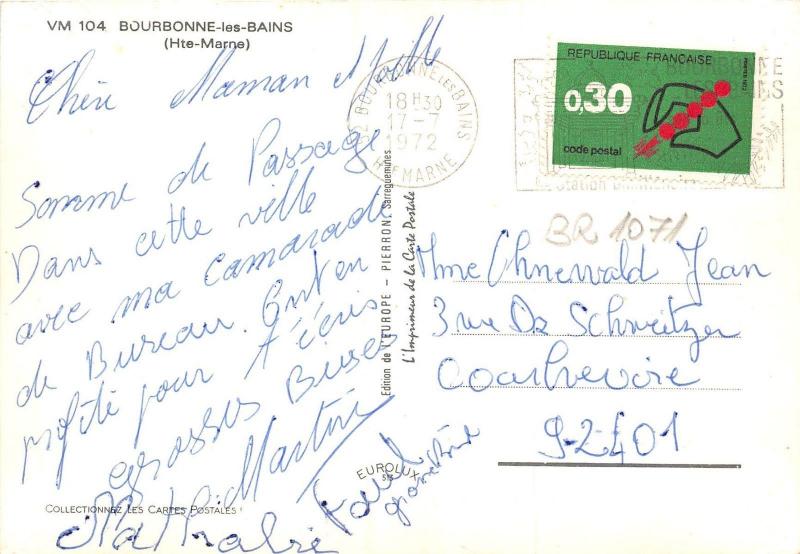 VM 104 BOURBONNE-les-BAINS
(Hte-Marne)
Chère Maman
Somme de Passage
Dans cette ville
avec ma camarade
de Bureau. Ont en
profité pour t'écris
grosses Bises
Martine
Nathalie
COLLECTIONNEZ LES CARTES POSTALES !
Edition de l'EUROPE - PIERRON - Sarreguemines
L'Imprimeur de la Carte Postale
EUROLUX
BOURBONNE les BAINS
18 H 30
17-7
1972
Hte MARNE
REPUBLIQUE FRANÇAISE
0,30
code postal
POSTES 1972
BOURBONNE
BAINS
BR 1071
Mme Ohnewald Jean
3 rue Dr Schweitzer
Courbevoie
92401